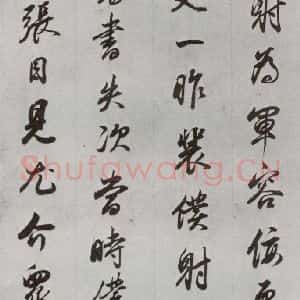 射為軍容佞
又一昨裴僕射
書失次當時僕
張目見尤介眾
Shufawang.Cn